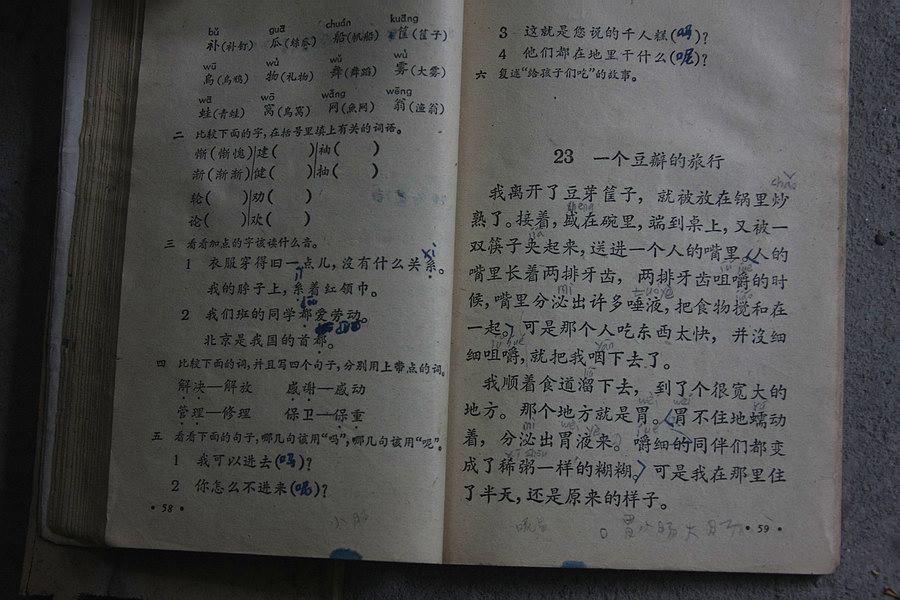 bǔ guā chuán kuāng
补(补钉) 瓜(丝瓜) 船(帆船) 筐(筐子)
wū wù wǔ wù
乌(乌鸦) 物(礼物) 舞(舞蹈) 雾(大雾)
wā wō wǎng wēng
蛙(青蛙) 窝(鸟窝) 网(鱼网) 翁(渔翁)
二 比较下面的字,在括号里填上有关的词语。
惭(惭愧) 建( ) 袖( )
渐(渐渐) 健( ) 抽( )
轮( ) 劝( )
论( ) 欢( )
三 看看加点的字该读什么音。
1 衣服穿得旧一点儿,没有什么关系。
xì
我的脖子上,系着红领巾。
2 我们班的同学都爱劳动。
北京是我国的首都。
四 比较下面的词,并且写四个句子,分别用上带点的词。
解决—解放 感谢—感动
管理—修理 保卫—保重
五 看看下面的句子,哪几句该用“吗”,哪几句该用“呢”。
1 我可以进去(吗)?
2 你怎么不进来(呢)?
• 58 •
小肠
3 这就是您说的千人糕(吗)?
4 他们都在地里干什么(呢)?
六 复述“给孩子们吃”的故事。
23 一个豆瓣的旅行
我离开了豆芽筐子,就被放在锅里炒
熟了。接着,盛在碗里,端到桌上,又被一
双筷子夹起来,送进一个人的嘴里。人的
嘴里长着两排牙齿,两排牙齿咀嚼的时
候,嘴里分泌出许多唾液,把食物搅和在
一起。可是那个人吃东西太快,并没细
细咀嚼,就把我咽下去了。
我顺着食道溜下去,到了个很宽大的
地方。那个地方就是胃。胃不住地蠕动
着,分泌出胃液来。嚼细的同伴们都变
成了稀粥一样的糊糊。可是我在那里住
了半天,还是原来的样子。
口 胃 小肠 大肠
• 59 •